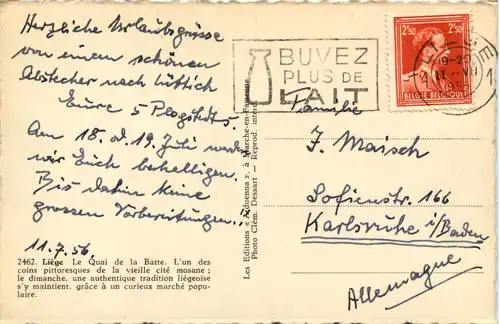 Herzliche Urlaubsgrüsse
von einem schönen
Abstecher nach Lüttich
Eure 5
Am 18. od. 19. Juli werden
wir Euch behelligen.
Bis dahin keine
grossen Vorbereitungen!
11.7.56.
2462. Liège Le Quai de la Batte. L'un des
coins pittoresques de la vieille cité mosane ;
le dimanche, une authentique tradition liégeoise
s'y maintient, grâce à un curieux marché popu-
laire.
Les Editions « », à Marche-en-Famenne
Photo Clém. Dessart — Reprod. interd.
BUVEZ
PLUS DE
LAIT
2F50 2F50
BELGIE BELGIQUE
Familie
J. Maisch
Sofienstr. 166
Karlsruhe i/Baden
Allemagne